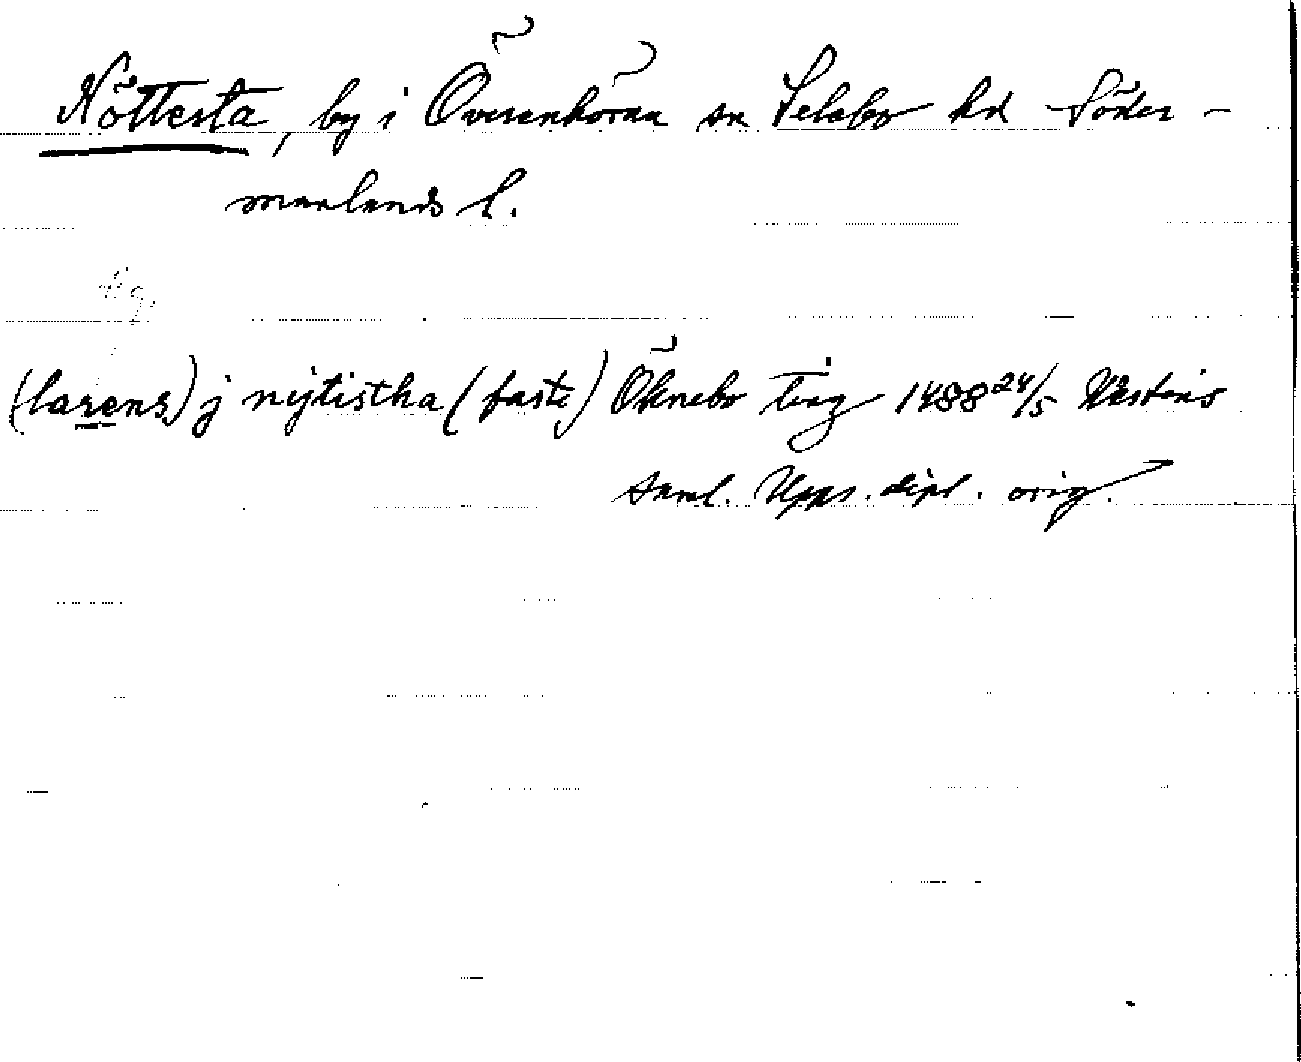 Nöttesta, by i Överenhörna sn Selebo hd Söder-
manlands l.
(larens) j nytistha (faste) Öknebo ting 1488 24/5 Västerås
saml. Upps. dipl. orig.